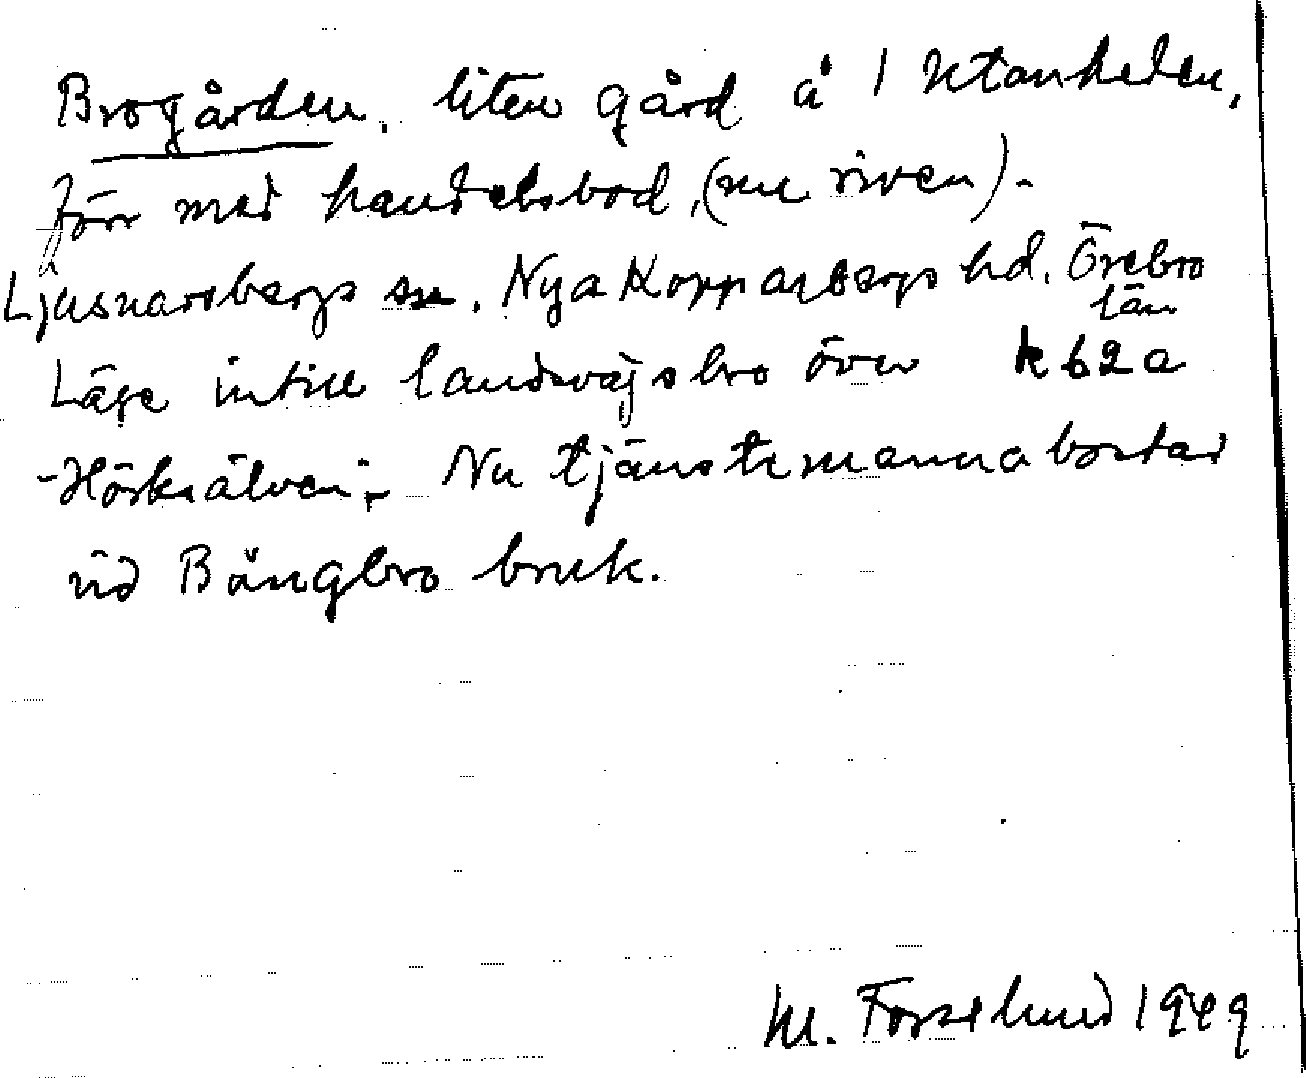 Brogården, liten gård å 1 Utanheden,
förr med handelsbod, (nu riven).-
Ljusnarsbergs sn. Nya Kopparbergs hd. Örebro
län
Läge intill landsvägsbro över k62a
Hörksälven;- Nu tjänstemannabostad
vid Bångbro bruk.
M. Forselund 1949